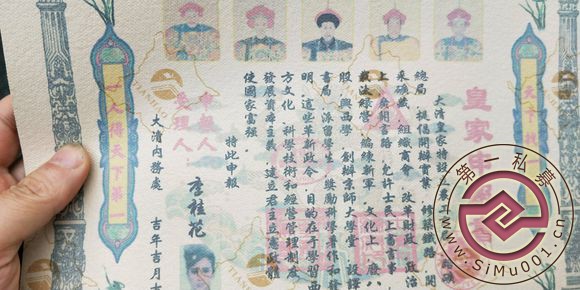 天下
皇家申報
大清皇家特設
總局，提倡開辦實業，修築鐵路、開
采礦藏、組織商會、改革財政。政治
上，廣開言路，允許士民上書言事，
裁汰綠營，編練新軍。文化上，廢八
股，興西學，創辦京師大學堂，設譯
書局，派留學生，獎勵科學著作和發
明。這些革新政令，目的在于學習西
方文化、科學技術和經營管理制度，
發展資本主義，建立君主立憲政體，
使國家富強。
特此申報
申報人：李桂花
受理人：
大清内務處
吉年吉月吉
一人得天下第一
第一私募
www.SiMu001.cn